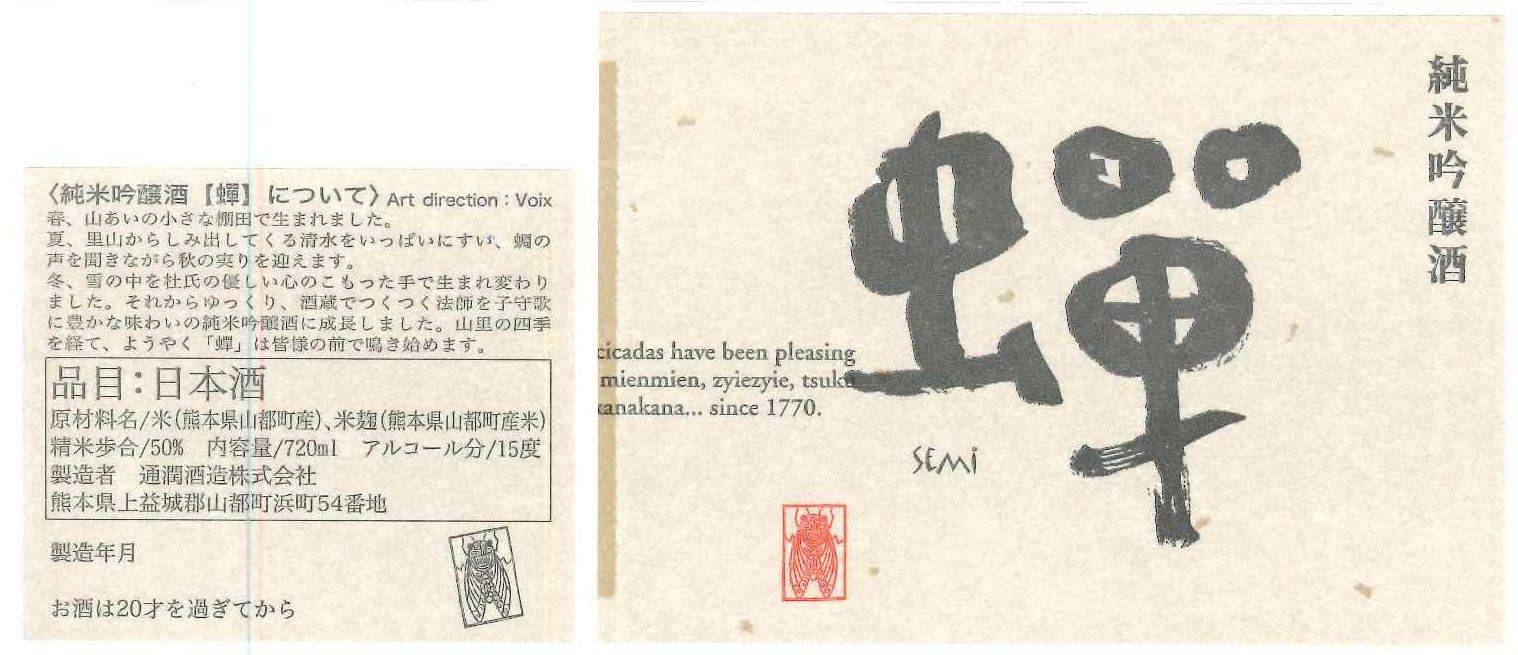 〈純米吟醸酒【蟬】について〉Art direction：Voix
春、山あいの小さな棚田で生まれました。
夏、里山からしみ出してくる清水をいっぱいにすい、蜩の
声を聞きながら秋の実りを迎えます。
冬、雪の中を杜氏の優しい心のこもった手で生まれ変わり
ました。それからゆっくり、酒蔵でつくつく法師を子守歌
に豊かな味わいの純米吟醸酒に成長しました。山里の四季
を経て、ようやく「蟬」は皆様の前で鳴き始めます。
品目：日本酒
原材料名/米（熊本県山都町産）、米麹（熊本県山都町産米）
精米歩合/50%　内容量/720ml　アルコール分/15度
製造者　通潤酒造株式会社
熊本県上益城郡山都町浜町54番地
製造年月
お酒は20才を過ぎてから
純米吟醸酒
蟬
cicadas have been pleasing
mienmien, zyiezyie, tsuku
kanakana... since 1770.
SEMi